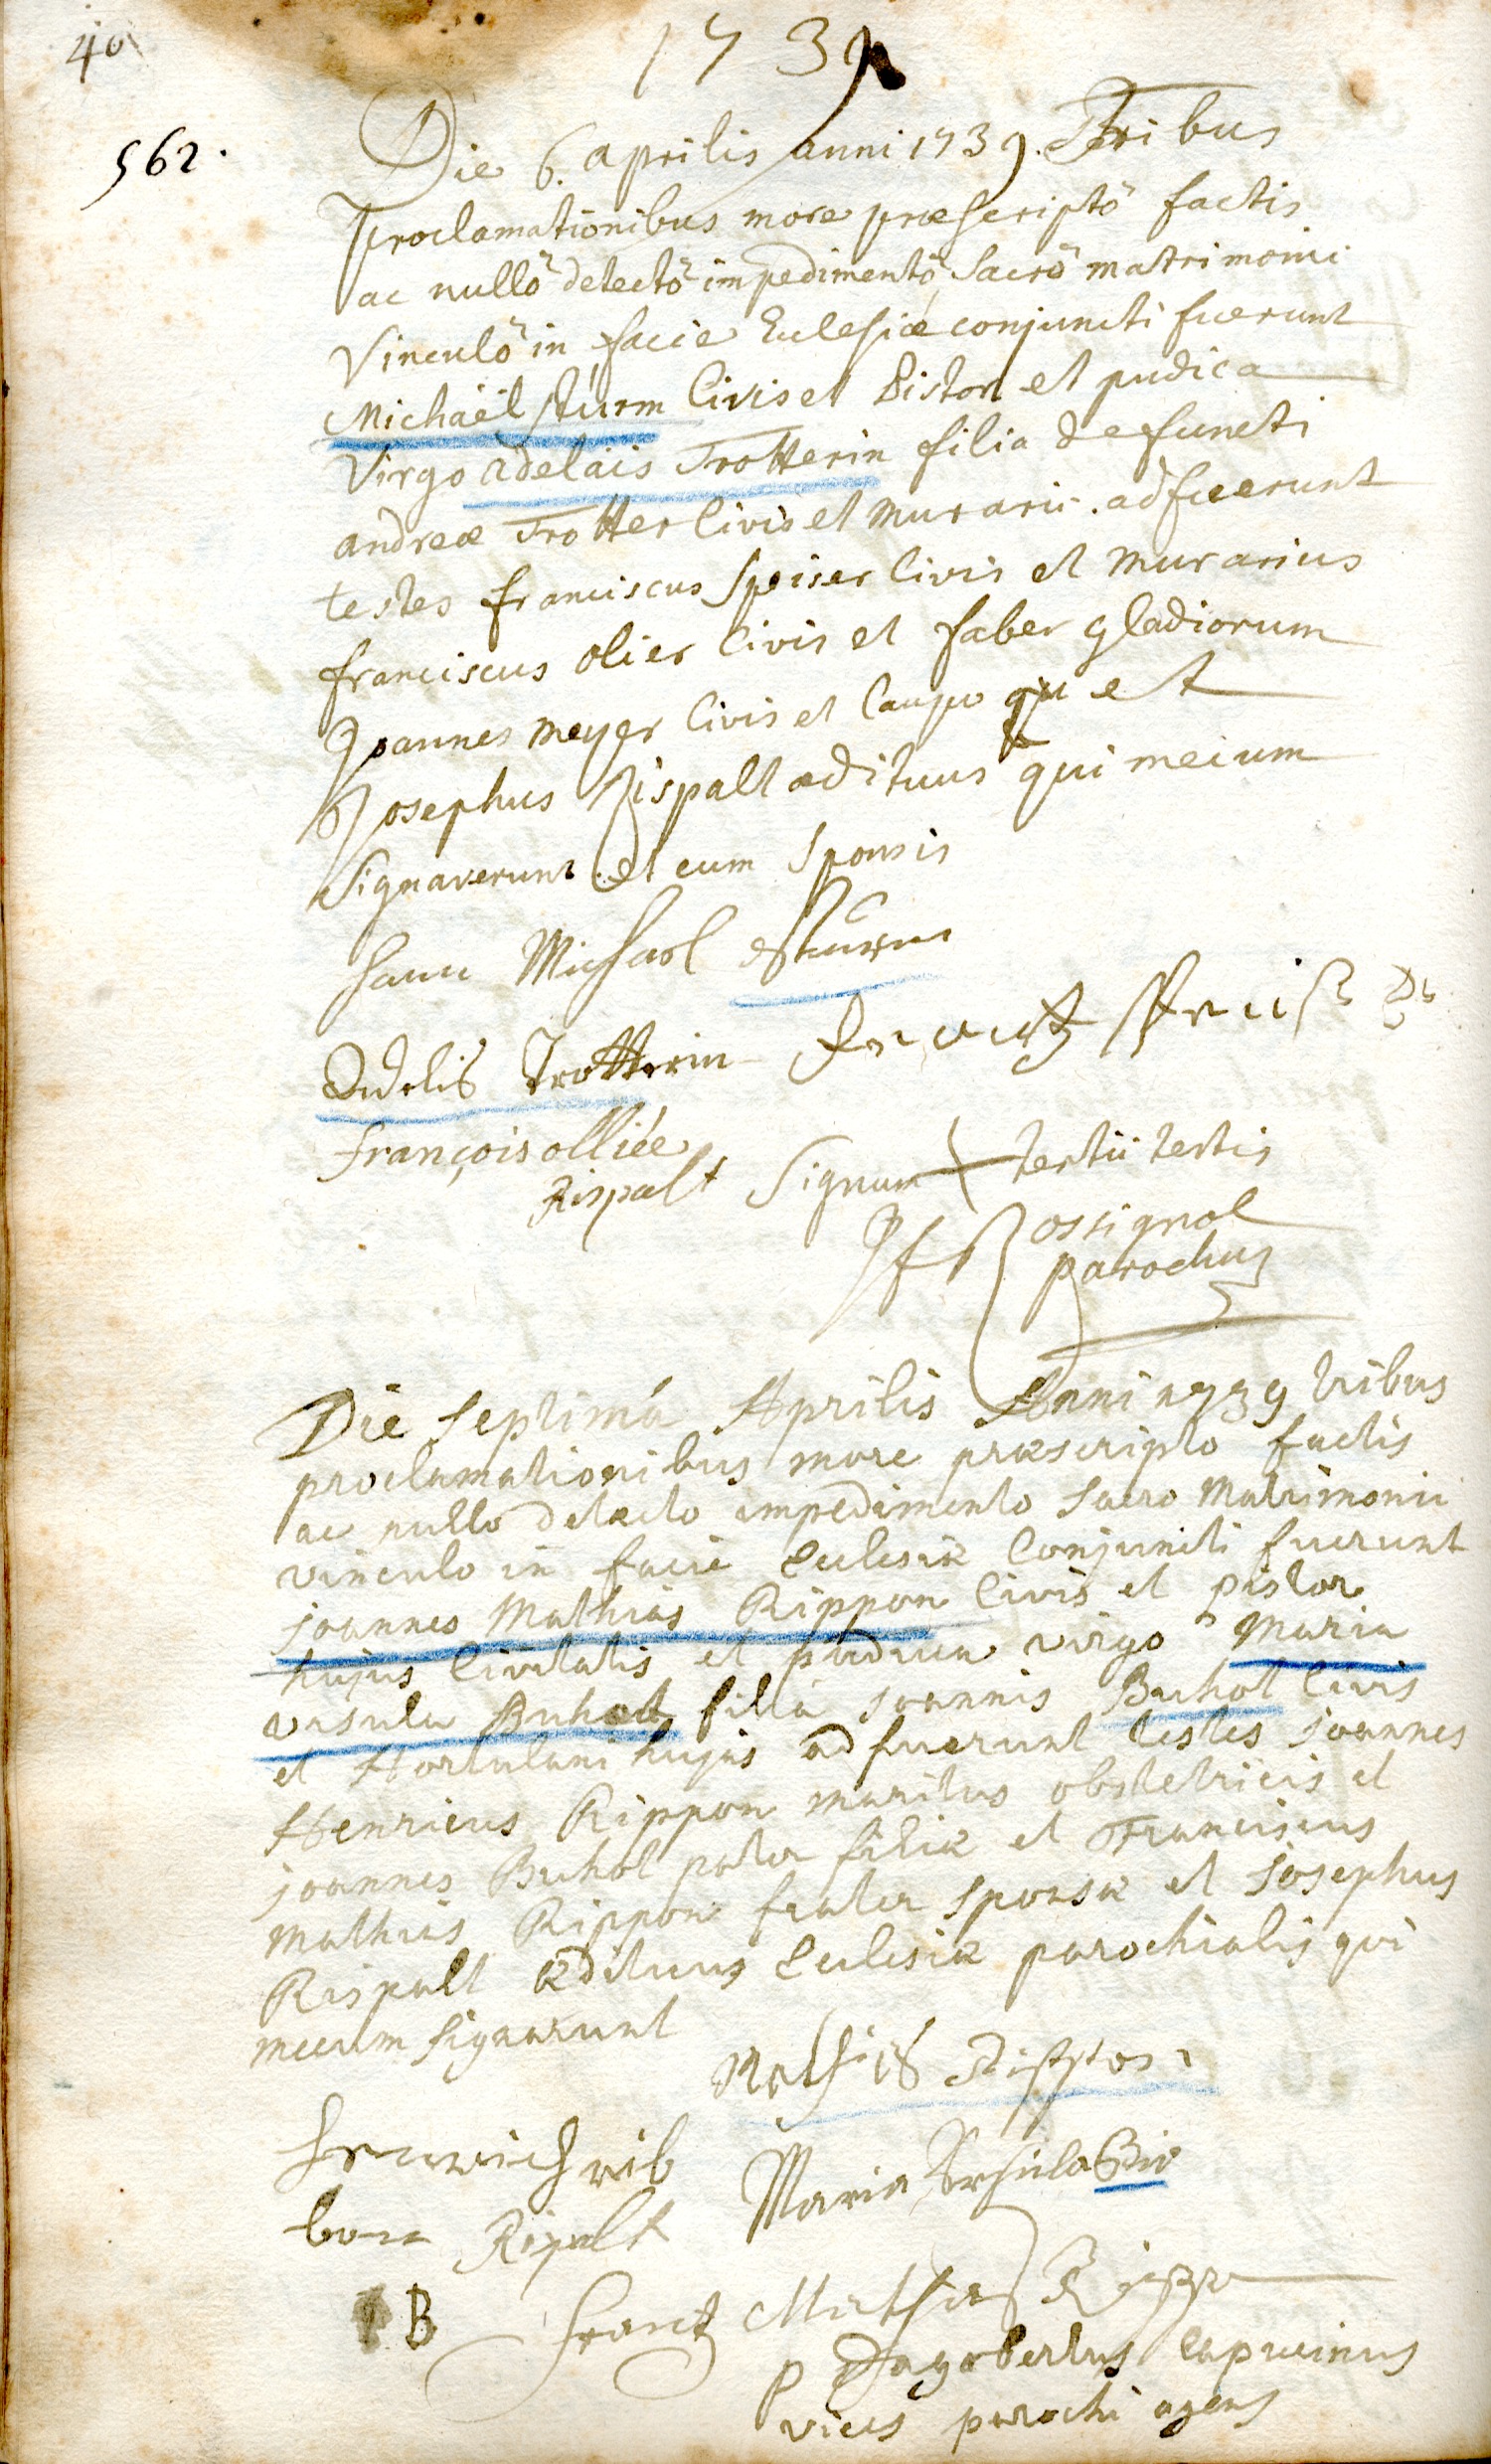 40
1739
562.
Die 6. aprilis anni 1739. Tribus
proclamationibus more præscriptõ factis
ac nullõ detectõ impedimentõ, Sacrõ matrimonii
Vinculõ in facie Eclesiæ conjuncti fuerunt
Michaël stúrm Civis et Pistor et pudica
Virgo adelais Trotterin filia defuncti
andreæ Trotter Civis et murarii. adfuerunt
testes franciscus Speiser Civis et murarius
franciscus olier Civis et faber gladiorum
Joannes meyer Civis et Caupo et
Josephus Rispalt ædituus qui mecum
Signaverunt et cum Sponsis
hanu Michael Sturm
Adelis Trotterin
françois olliée
Rispalt Signum + tertii testis
J f Rossignol
parochus
Die Septimá Aprilis Anni 1739 tribus
proclamationibus more præscripto factis
ac nullo detecto impedimento Sacro Matrimonii
vinculo in facie Eclesiæ Conjuncti fuerunt
joannes Mathias Rippon Civis et pistor
hujus Civitatis et pudica virgo Maria
ursula Buhot filiá joannis Buhot Civis
et Hortulani hujus adfuerunt testes joannes
Henricus Rippon maritus obstetricis et
joannes Buhot pater filiæ et Franciscus
Mathias Rippon frater sponsæ et Josephus
Rispalt ædituus Eclesiæ parochialis qui
mecum signarunt
Mathis Rippon
henrich rib
bon Rispalt Maria Ursula Bu
B frantz Mathias Rippo
p Dagobertus Capucinus
vices parochi agens